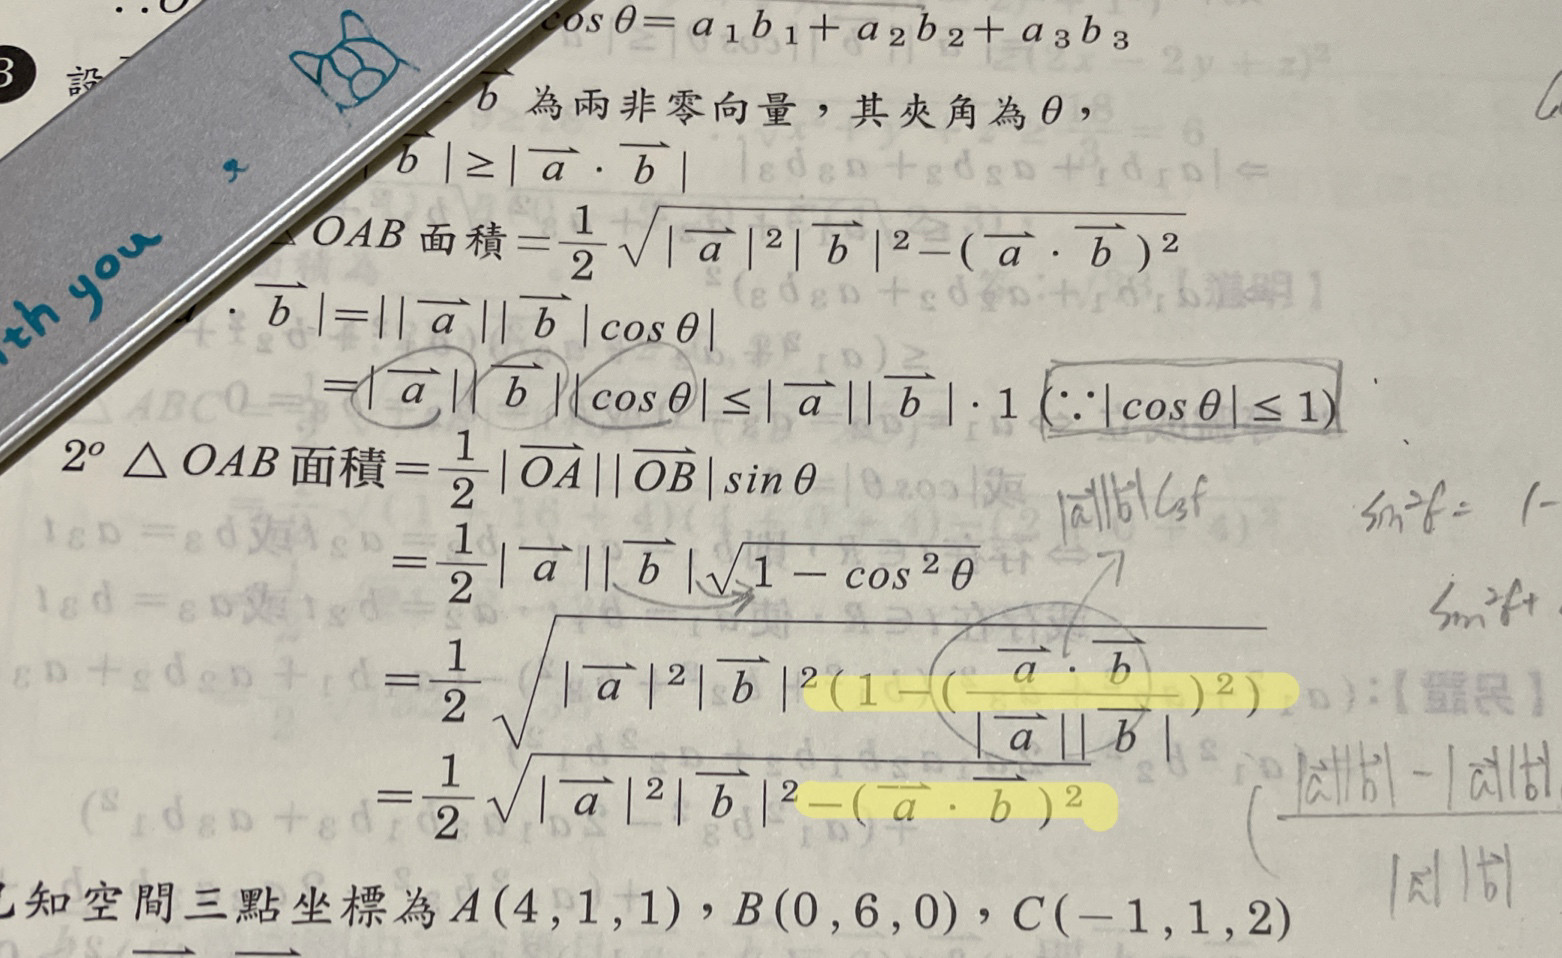 cos θ = a₁b₁ + a₂b₂ + a₃b₃
3 設
b⃗ 為兩非零向量，其夾角為 θ，
b⃗ | ≥ | a⃗ · b⃗ |
△OAB 面積 = 1/2 √(| a⃗ |²| b⃗ |² − ( a⃗ · b⃗ )²)
· b⃗ | = || a⃗ || b⃗ | cos θ |
= | a⃗ || b⃗ || cos θ | ≤ | a⃗ || b⃗ | · 1 (∵ | cos θ | ≤ 1)
2° △OAB 面積 = 1/2 | OA⃗ || OB⃗ | sin θ
= 1/2 | a⃗ || b⃗ | √(1 − cos² θ)
= 1/2 √(| a⃗ |²| b⃗ |² (1 − (a⃗ · b⃗ / | a⃗ || b⃗ |)²))
= 1/2 √(| a⃗ |²| b⃗ |² − ( a⃗ · b⃗ )²)
知空間三點坐標為 A(4,1,1)，B(0,6,0)，C(−1,1,2)
with you
|a⃗||b⃗|
|a⃗||b⃗| − |a⃗||b⃗|
|a⃗| |b⃗|